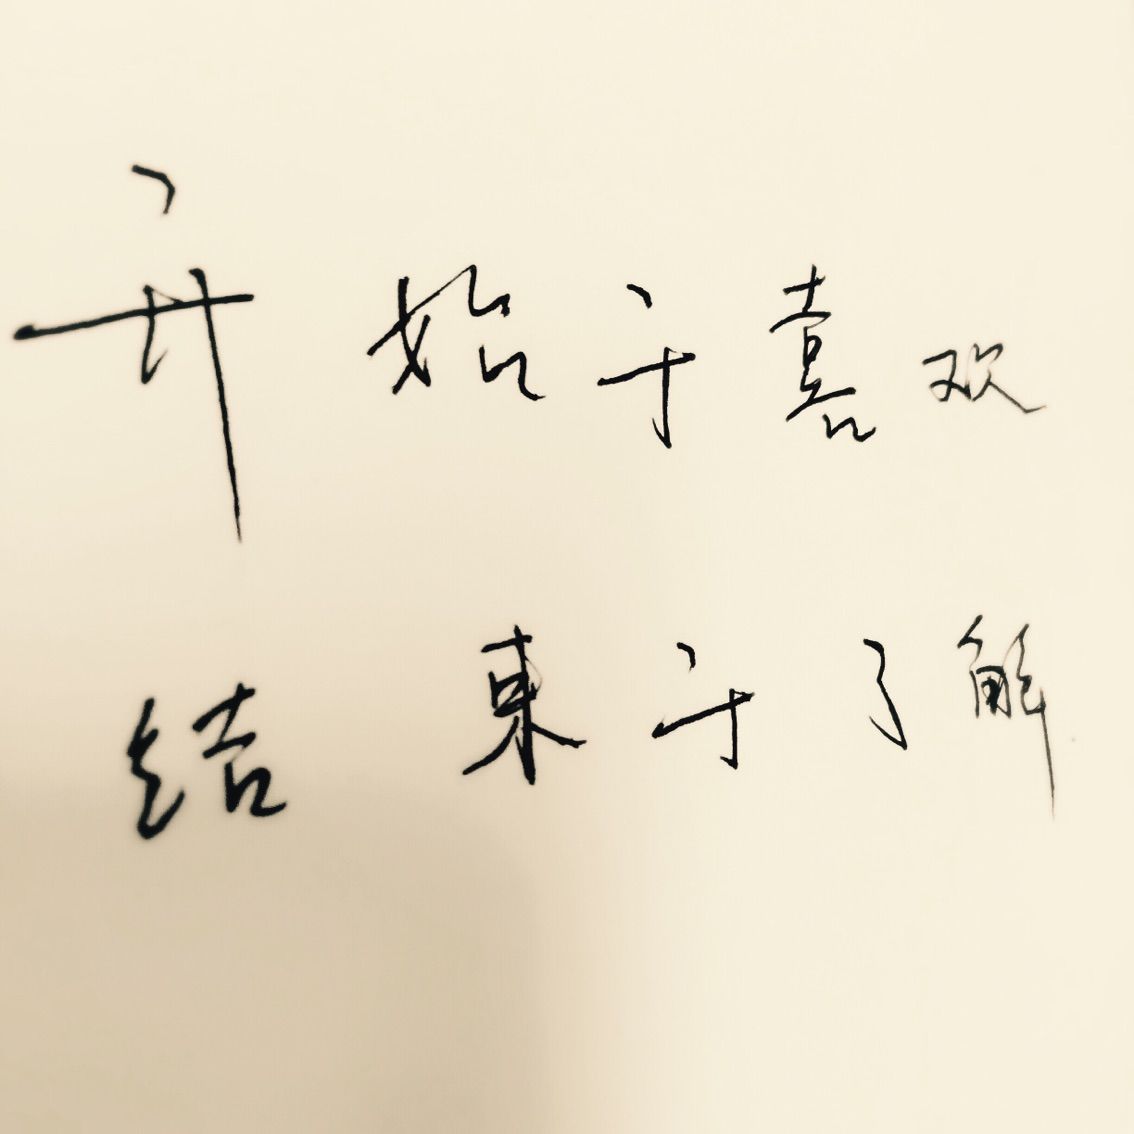 开始于喜欢
结束于了解